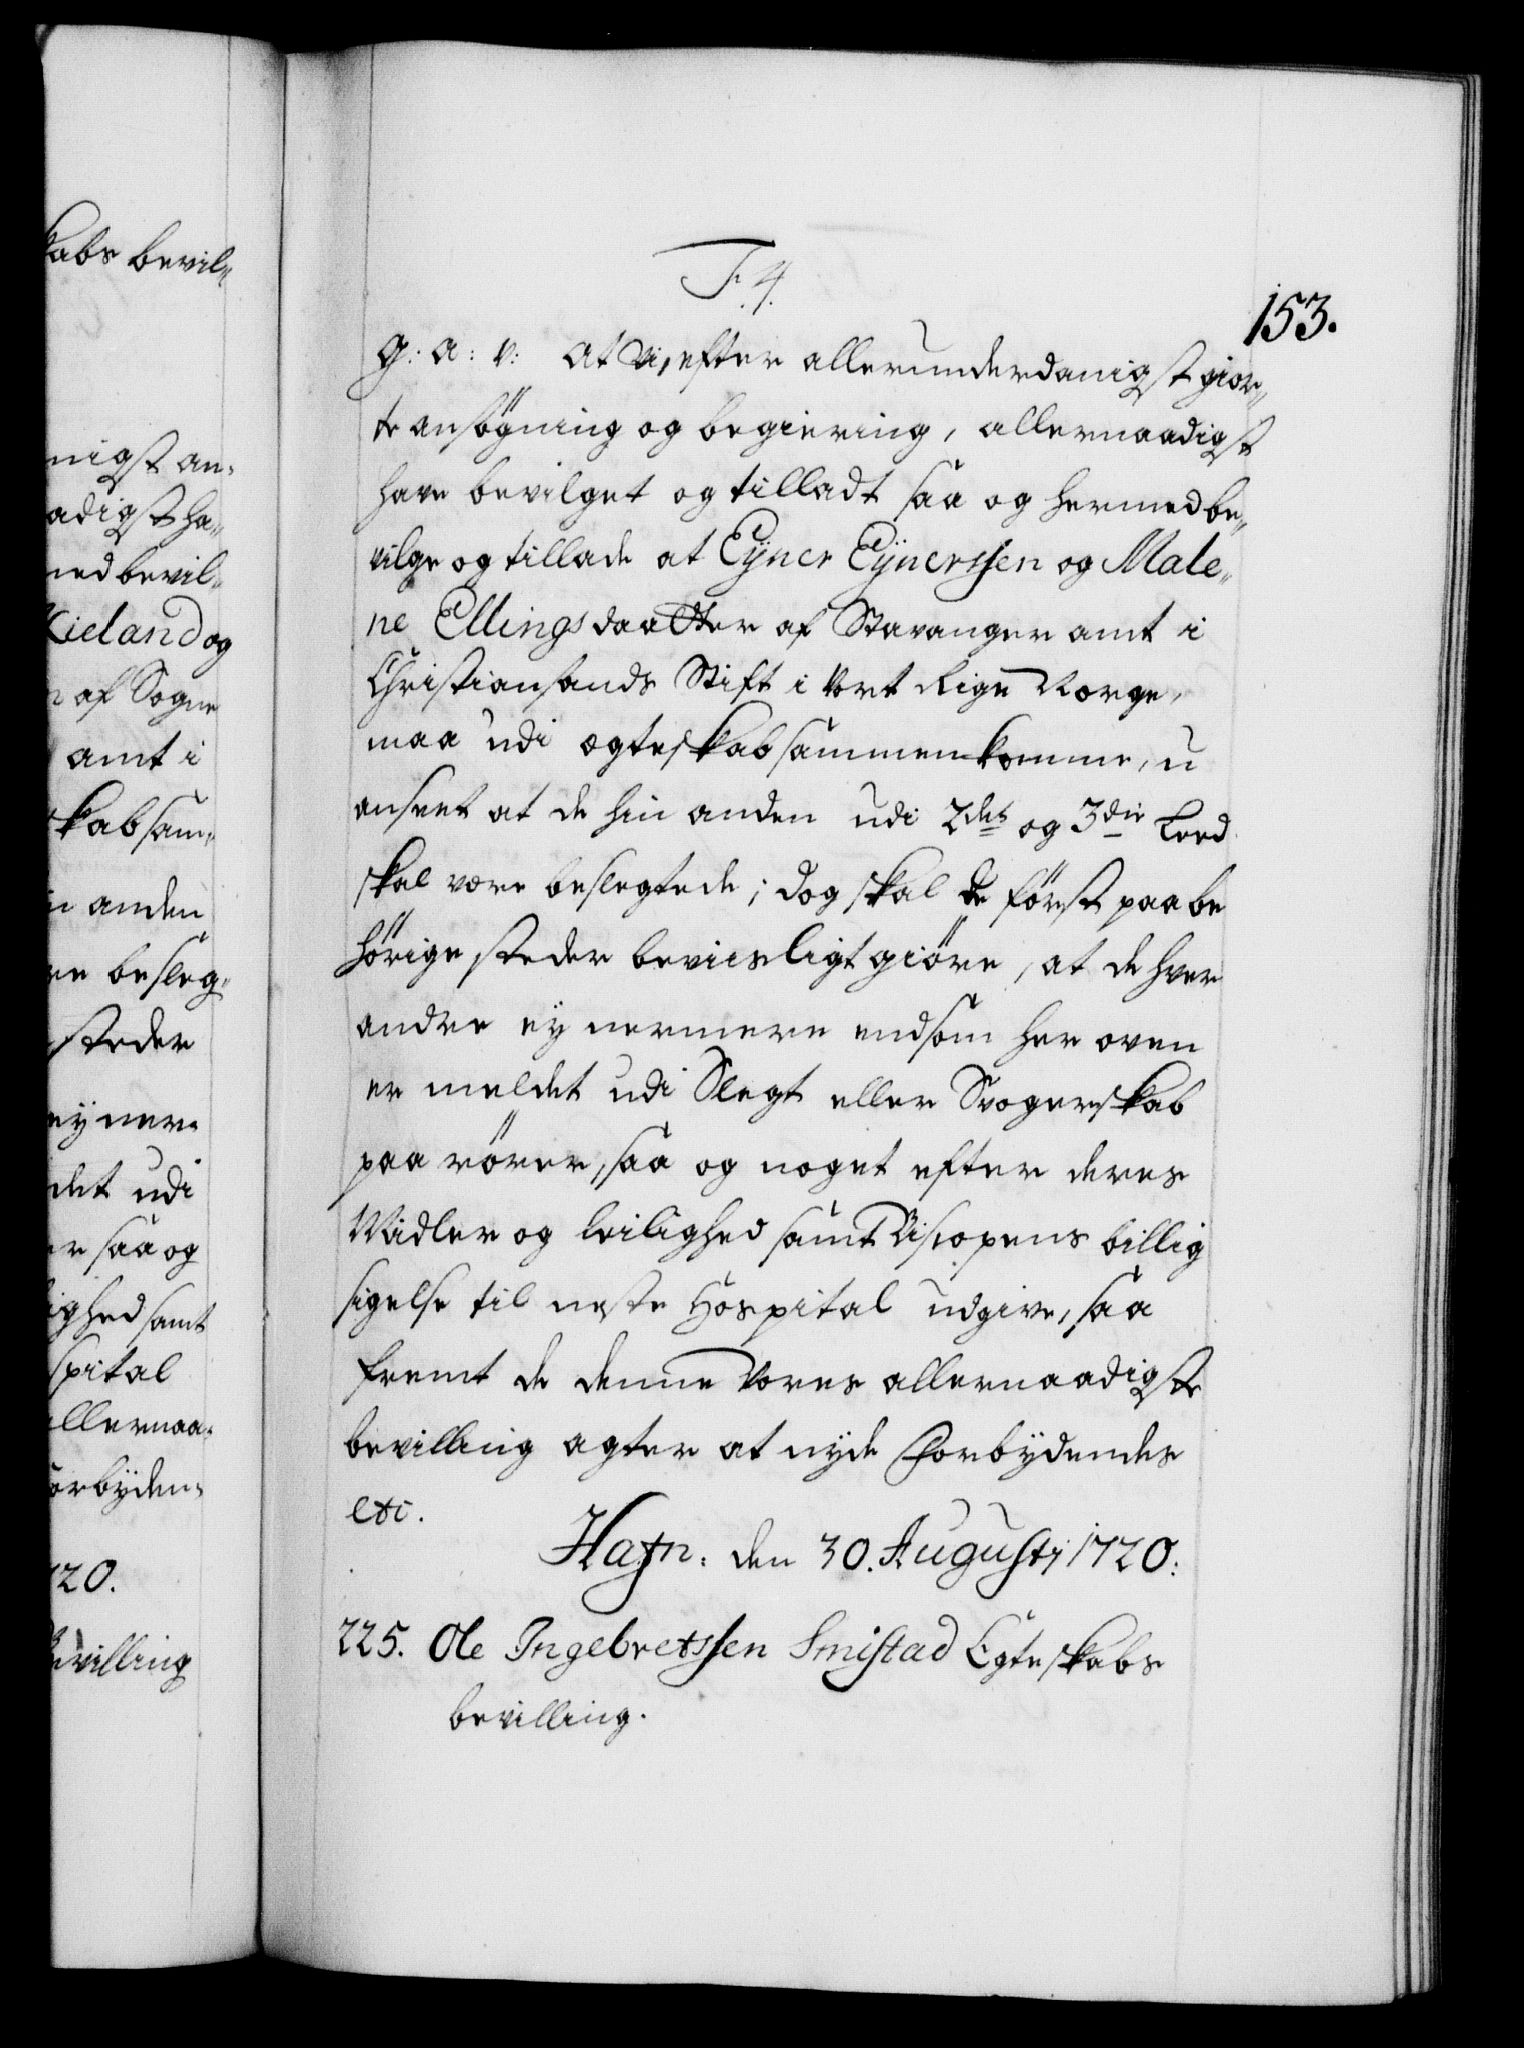 kabs bevil„
nigst an„
adigst ha„
med bevil„
Kieland og
n af Sogne
amt i
skab sam„
in anden
re besleg„
steder
ey ner„
det udi
er saa og
lighed samt
spital
allernaa„
forbyden„
720.
bevilling
F. 4.
153.
G: a: v: At Vi, efter allerunderdanigst gior„
te ansögning og begiering, allernaadigst
have bevilget og tilladt saa og hermed be„
vilge og tillade at Eyner Eynerssen og Male„
ne Ellings daatter af Stavanger amt i
Christiansands Stift i Vort Rige Norge,
maa udi ægteskab sammenkomme, u
anseet at de hin anden udi 2det og 3die Leed
skal være beslegtede; dog skal de först paa be
hörige steder beviisligt giöre, at de hver
andre ey nermere endsom her oven
er meldet udi Slegt eller Svogerskab
paa rörer, saa og noget efter deres
Midler og leilighed samt Biscopens billig
sigelse til neste Hospital udgive, saa
fremt de denne Vores allernaadigste
bevilling agter at nyde Forbydendes
etc.
Hafn: den 30. Augusti 1720:
225. Ole Ingebretssen Smistad Egteskabs
bevilling.